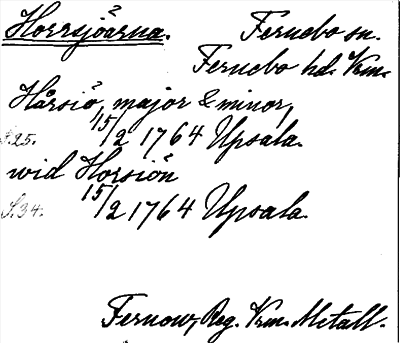 Horrsjöarna. Fernebo sn.
Fernebo hd. Vrm.
Hårsiö, major & minor,
S.25. 15/2 1764 Upsala.
wid Horsiön
S.34. 15/2 1764 Upsala.
Fernow, Reg. Vrm. Metall.